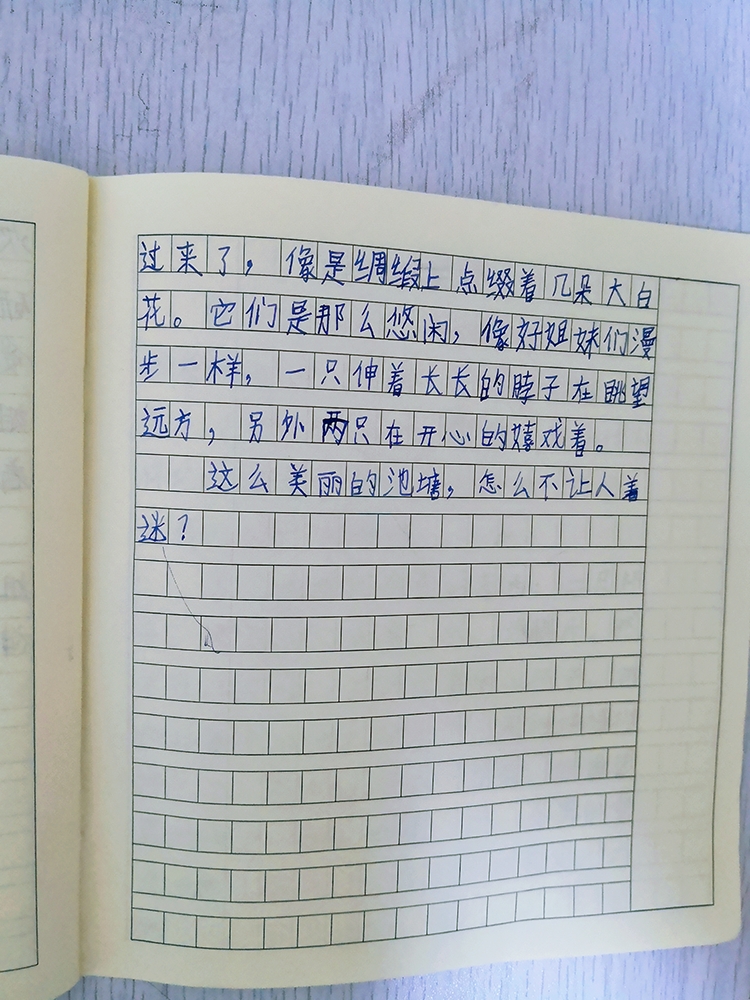 过来了，像是绸缎上点缀着几朵大白
花。它们是那么悠闲，像好姐妹们漫
步一样，一只伸着长长的脖子在眺望
远方，另外两只在开心的嬉戏着。
这么美丽的池塘，怎么不让人着
迷？